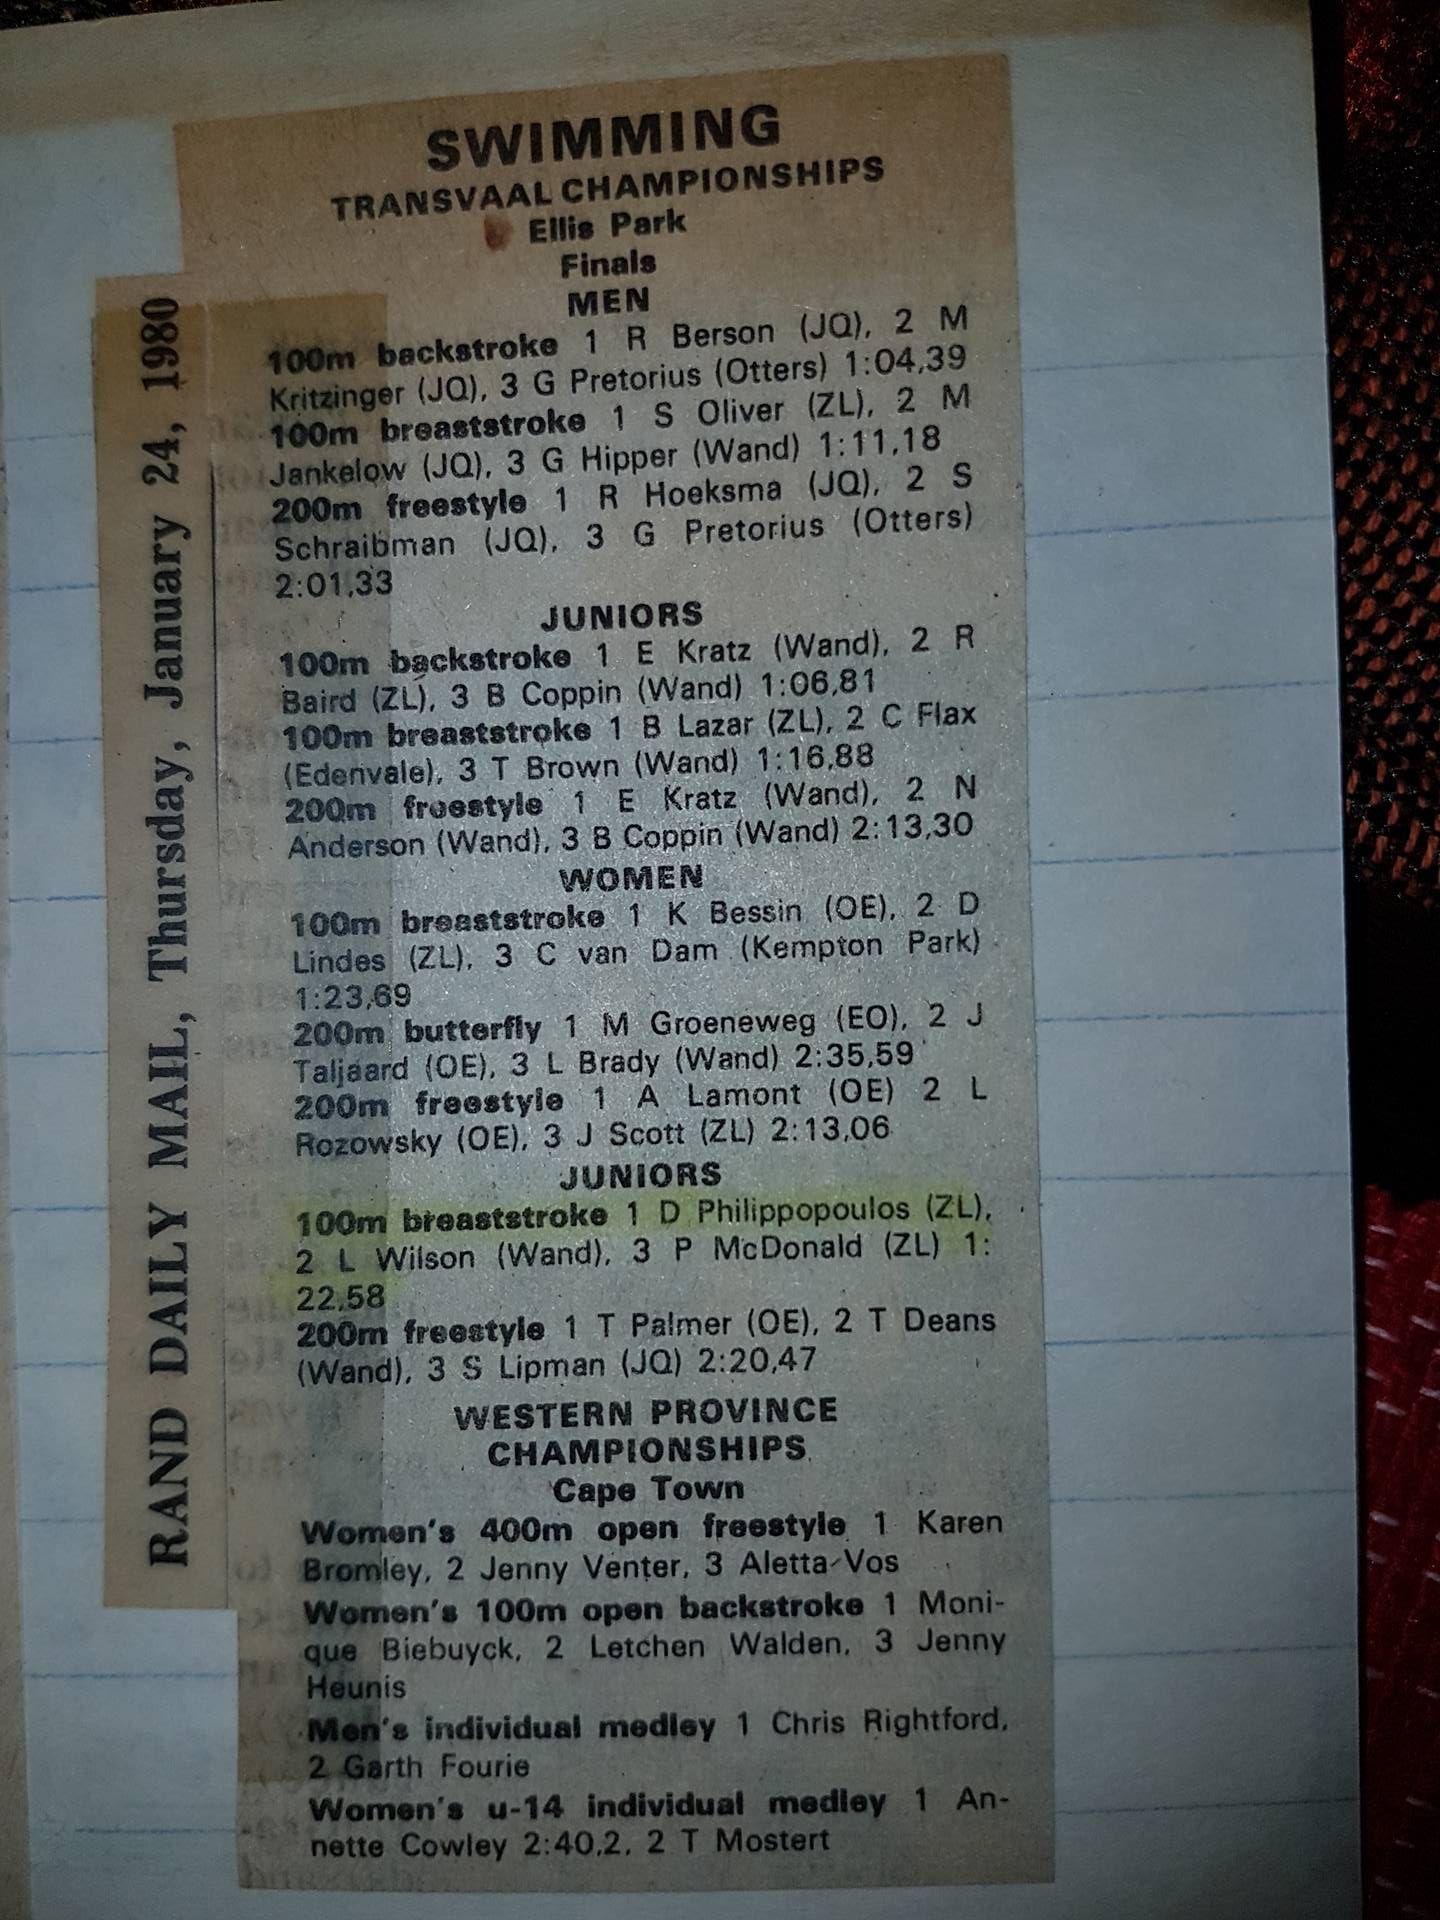 SWIMMING
TRANSVAAL CHAMPIONSHIPS
Ellis Park
Finals
MEN
100m backstroke 1 R Berson (JQ), 2 M
Kritzinger (JQ), 3 G Pretorius (Otters) 1:04,39
100m breaststroke 1 S Oliver (ZL), 2 M
Jankelow (JQ), 3 G Hipper (Wand) 1:11,18
200m freestyle 1 R Hoeksma (JQ), 2 S
Schraibman (JQ), 3 G Pretorius (Otters)
2:01,33
JUNIORS
100m backstroke 1 E Kratz (Wand), 2 R
Baird (ZL), 3 B Coppin (Wand) 1:06,81
100m breaststroke 1 B Lazar (ZL), 2 C Flax
(Edenvale), 3 T Brown (Wand) 1:16,88
200m freestyle 1 E Kratz (Wand), 2 N
Anderson (Wand), 3 B Coppin (Wand) 2:13,30
WOMEN
100m breaststroke 1 K Bessin (OE), 2 D
Lindes (ZL), 3 C van Dam (Kempton Park)
1:23,69
200m butterfly 1 M Groeneweg (EO), 2 J
Taljaard (OE), 3 L Brady (Wand) 2:35,59
200m freestyle 1 A Lamont (OE) 2 L
Rozowsky (OE), 3 J Scott (ZL) 2:13,06
JUNIORS
100m breaststroke 1 D Philippopoulos (ZL),
2 L Wilson (Wand), 3 P McDonald (ZL) 1:
22,58
200m freestyle 1 T Palmer (OE), 2 T Deans
(Wand), 3 S Lipman (JQ) 2:20,47
WESTERN PROVINCE
CHAMPIONSHIPS
Cape Town
Women's 400m open freestyle 1 Karen
Bromley, 2 Jenny Venter, 3 Aletta Vos
Women's 100m open backstroke 1 Moni-
que Biebuyck, 2 Letchen Walden, 3 Jenny
Heunis
Men's individual medley 1 Chris Rightford,
2 Garth Fourie
Women's u-14 individual medley 1 An-
nette Cowley 2:40,2, 2 T Mostert
RAND DAILY MAIL, Thursday, January 24, 1980